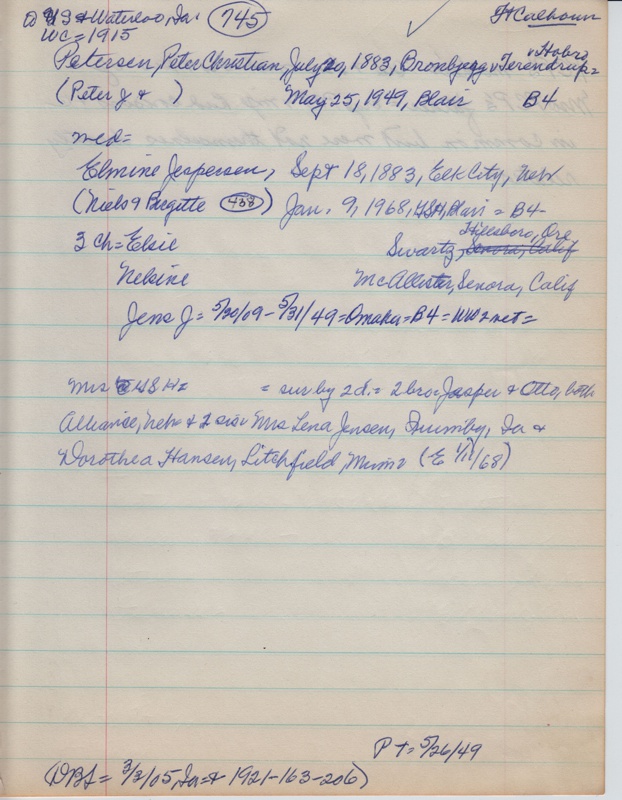 US & Waterloo, Ia. 745 Ft Calhoun
WC = 1915
v Hobro
Petersen, Peter Christian July 20, 1883, Bronbyegg v Terendrup =
(Peter J & ) May 25, 1949, Blair B4
med =
Elmine Jespersen, Sept 18, 1883, Elk City, Neb
(Niels & Birgitte 438) Jan. 9, 1968, GSH, Blair = B4
3 Ch = Elsie Swartz, Hillsboro, Ore Senora, Calif
Nelsine McAllister, Senora, Calif
Jens J = 5/30/09 - 5/31/49 = Omaha = B4 = WW2 vet =
Mrs GSH = = sur by 2 d. = 2 bro = Jasper & Otto, both
Alliance, Nebr & 2 sis = Mrs Lena Jensen, Ia &
Dorothea Hansen, Litchfield, Minn = (E 1/11/68)
PT = 5/26/49
(DBF = 3/3/05, Ia = & 1921-163-206)